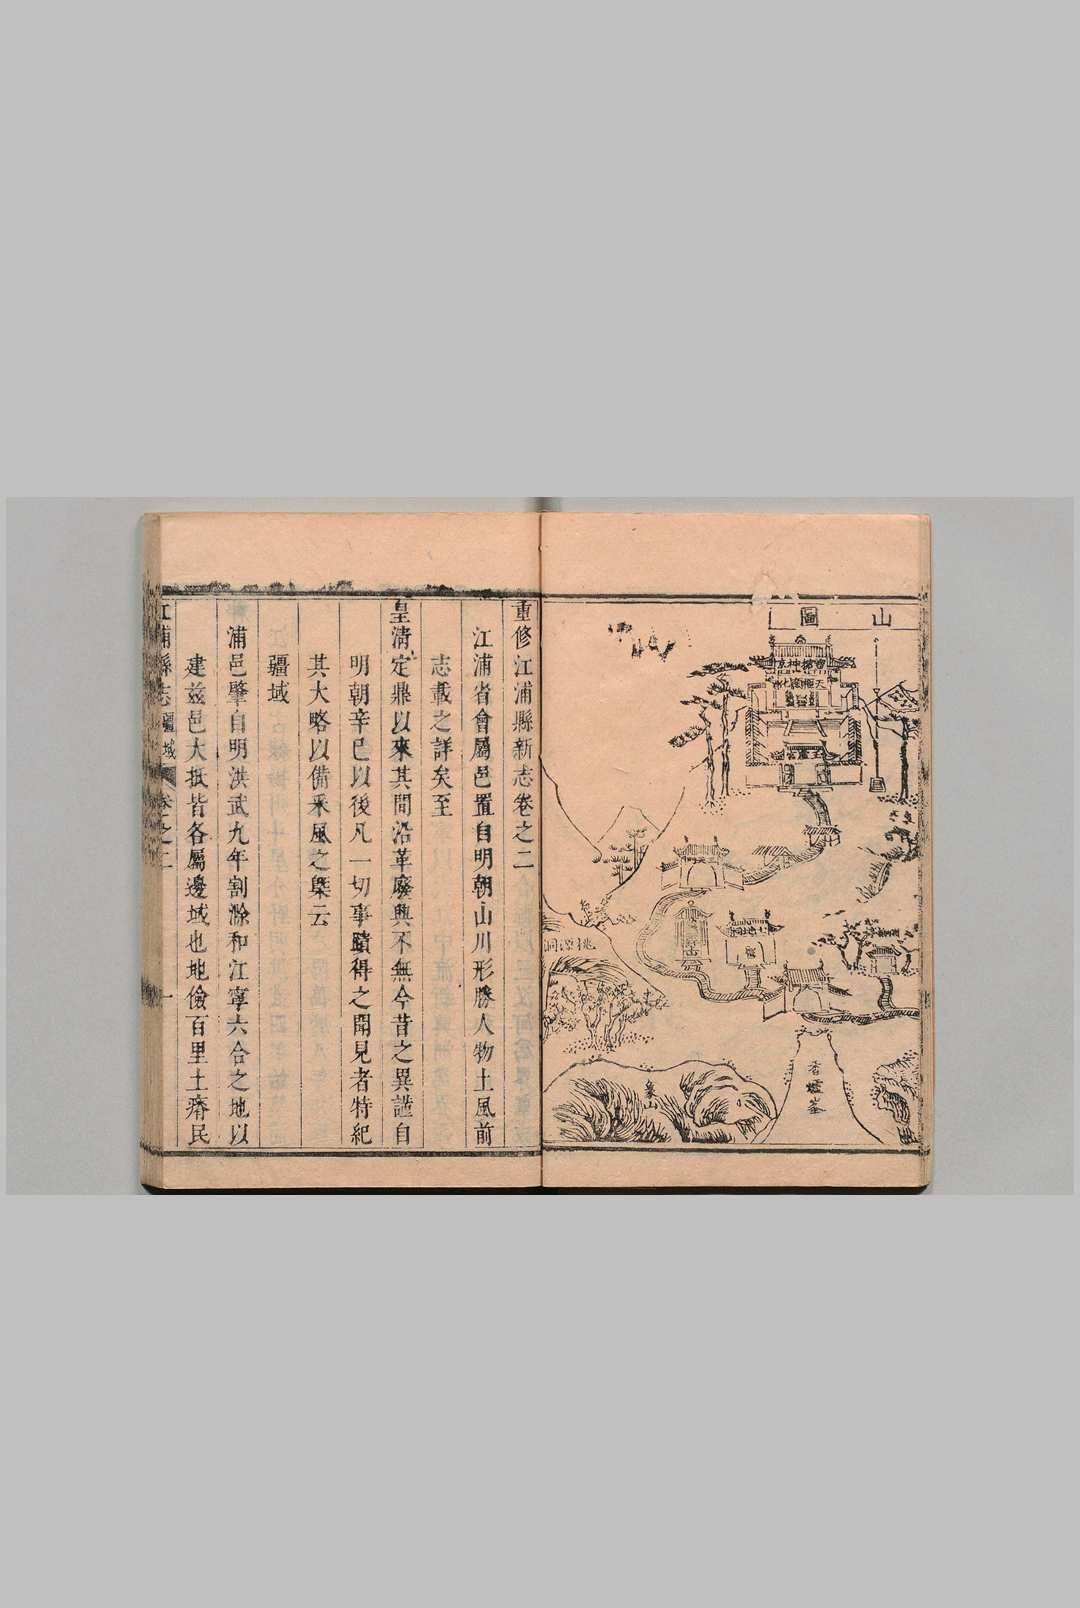 山圖
桃源洞
象山
香爐峯
重修江浦縣新志卷之二
江浦省會屬邑置自明朝山川形勝人物土風前
志載之詳矣至
皇淸定鼎以來其間沿革廢興不無今昔之異謹自
明朝辛巳以後凡一切事蹟得之聞見者特紀
其大略以備釆風之槩云
疆域
浦邑肇自明洪武九年割滁和江寧六合之地以
建兹邑大抵皆各屬邊域也地儉百里土瘠民
江浦縣志 疆域 卷之二 一